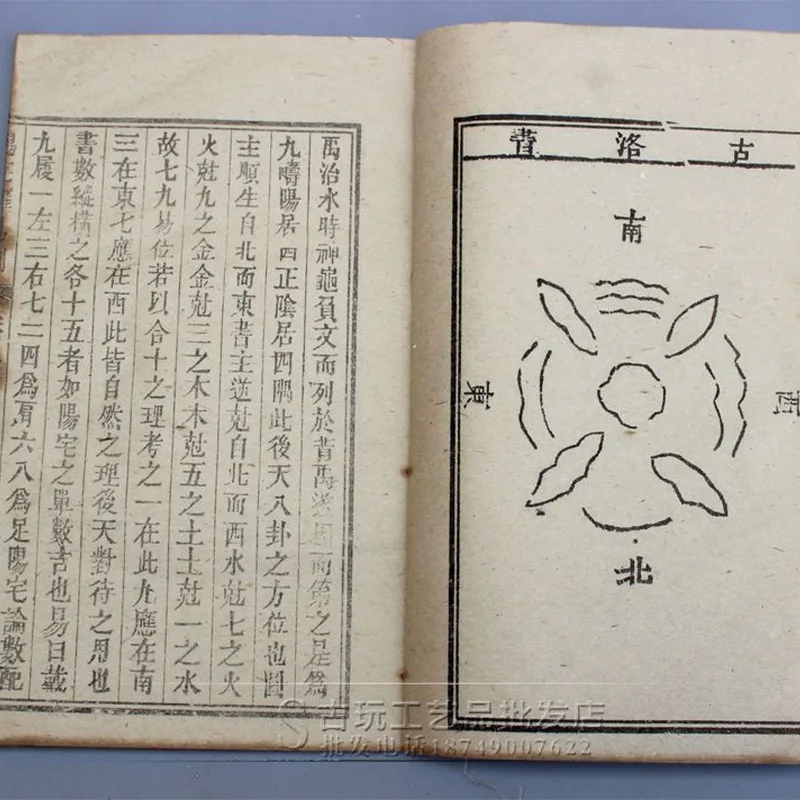 古洛書
南
東
西
北
禹治水時神龜負文而列於昔禹遂因而第之是為
九疇陽居四正陰居四隅此後天八卦之方位也圖
主順生自北而東書主逆尅自北而西水尅七之火
火尅九之金金尅三之木木尅五之土土尅一之水
故七九易位若以合十之理考之一在此九應在南
三在東七應在西此皆自然之理後天對待之用也
書數縱橫之各十五者如陽宅之單數吉也易曰戴
九履一左三右七二四為肩六八為足陽宅論數配
古玩工艺品批发店
批发电话18749007622